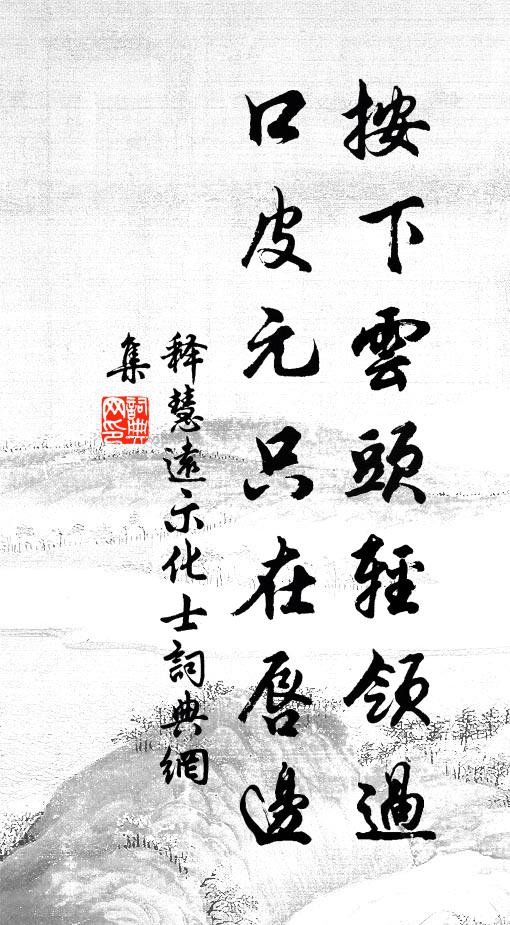 按下雲頭輕領過
口皮元只在唇邊
释慧遠示化士詞典網
集
詞典網印